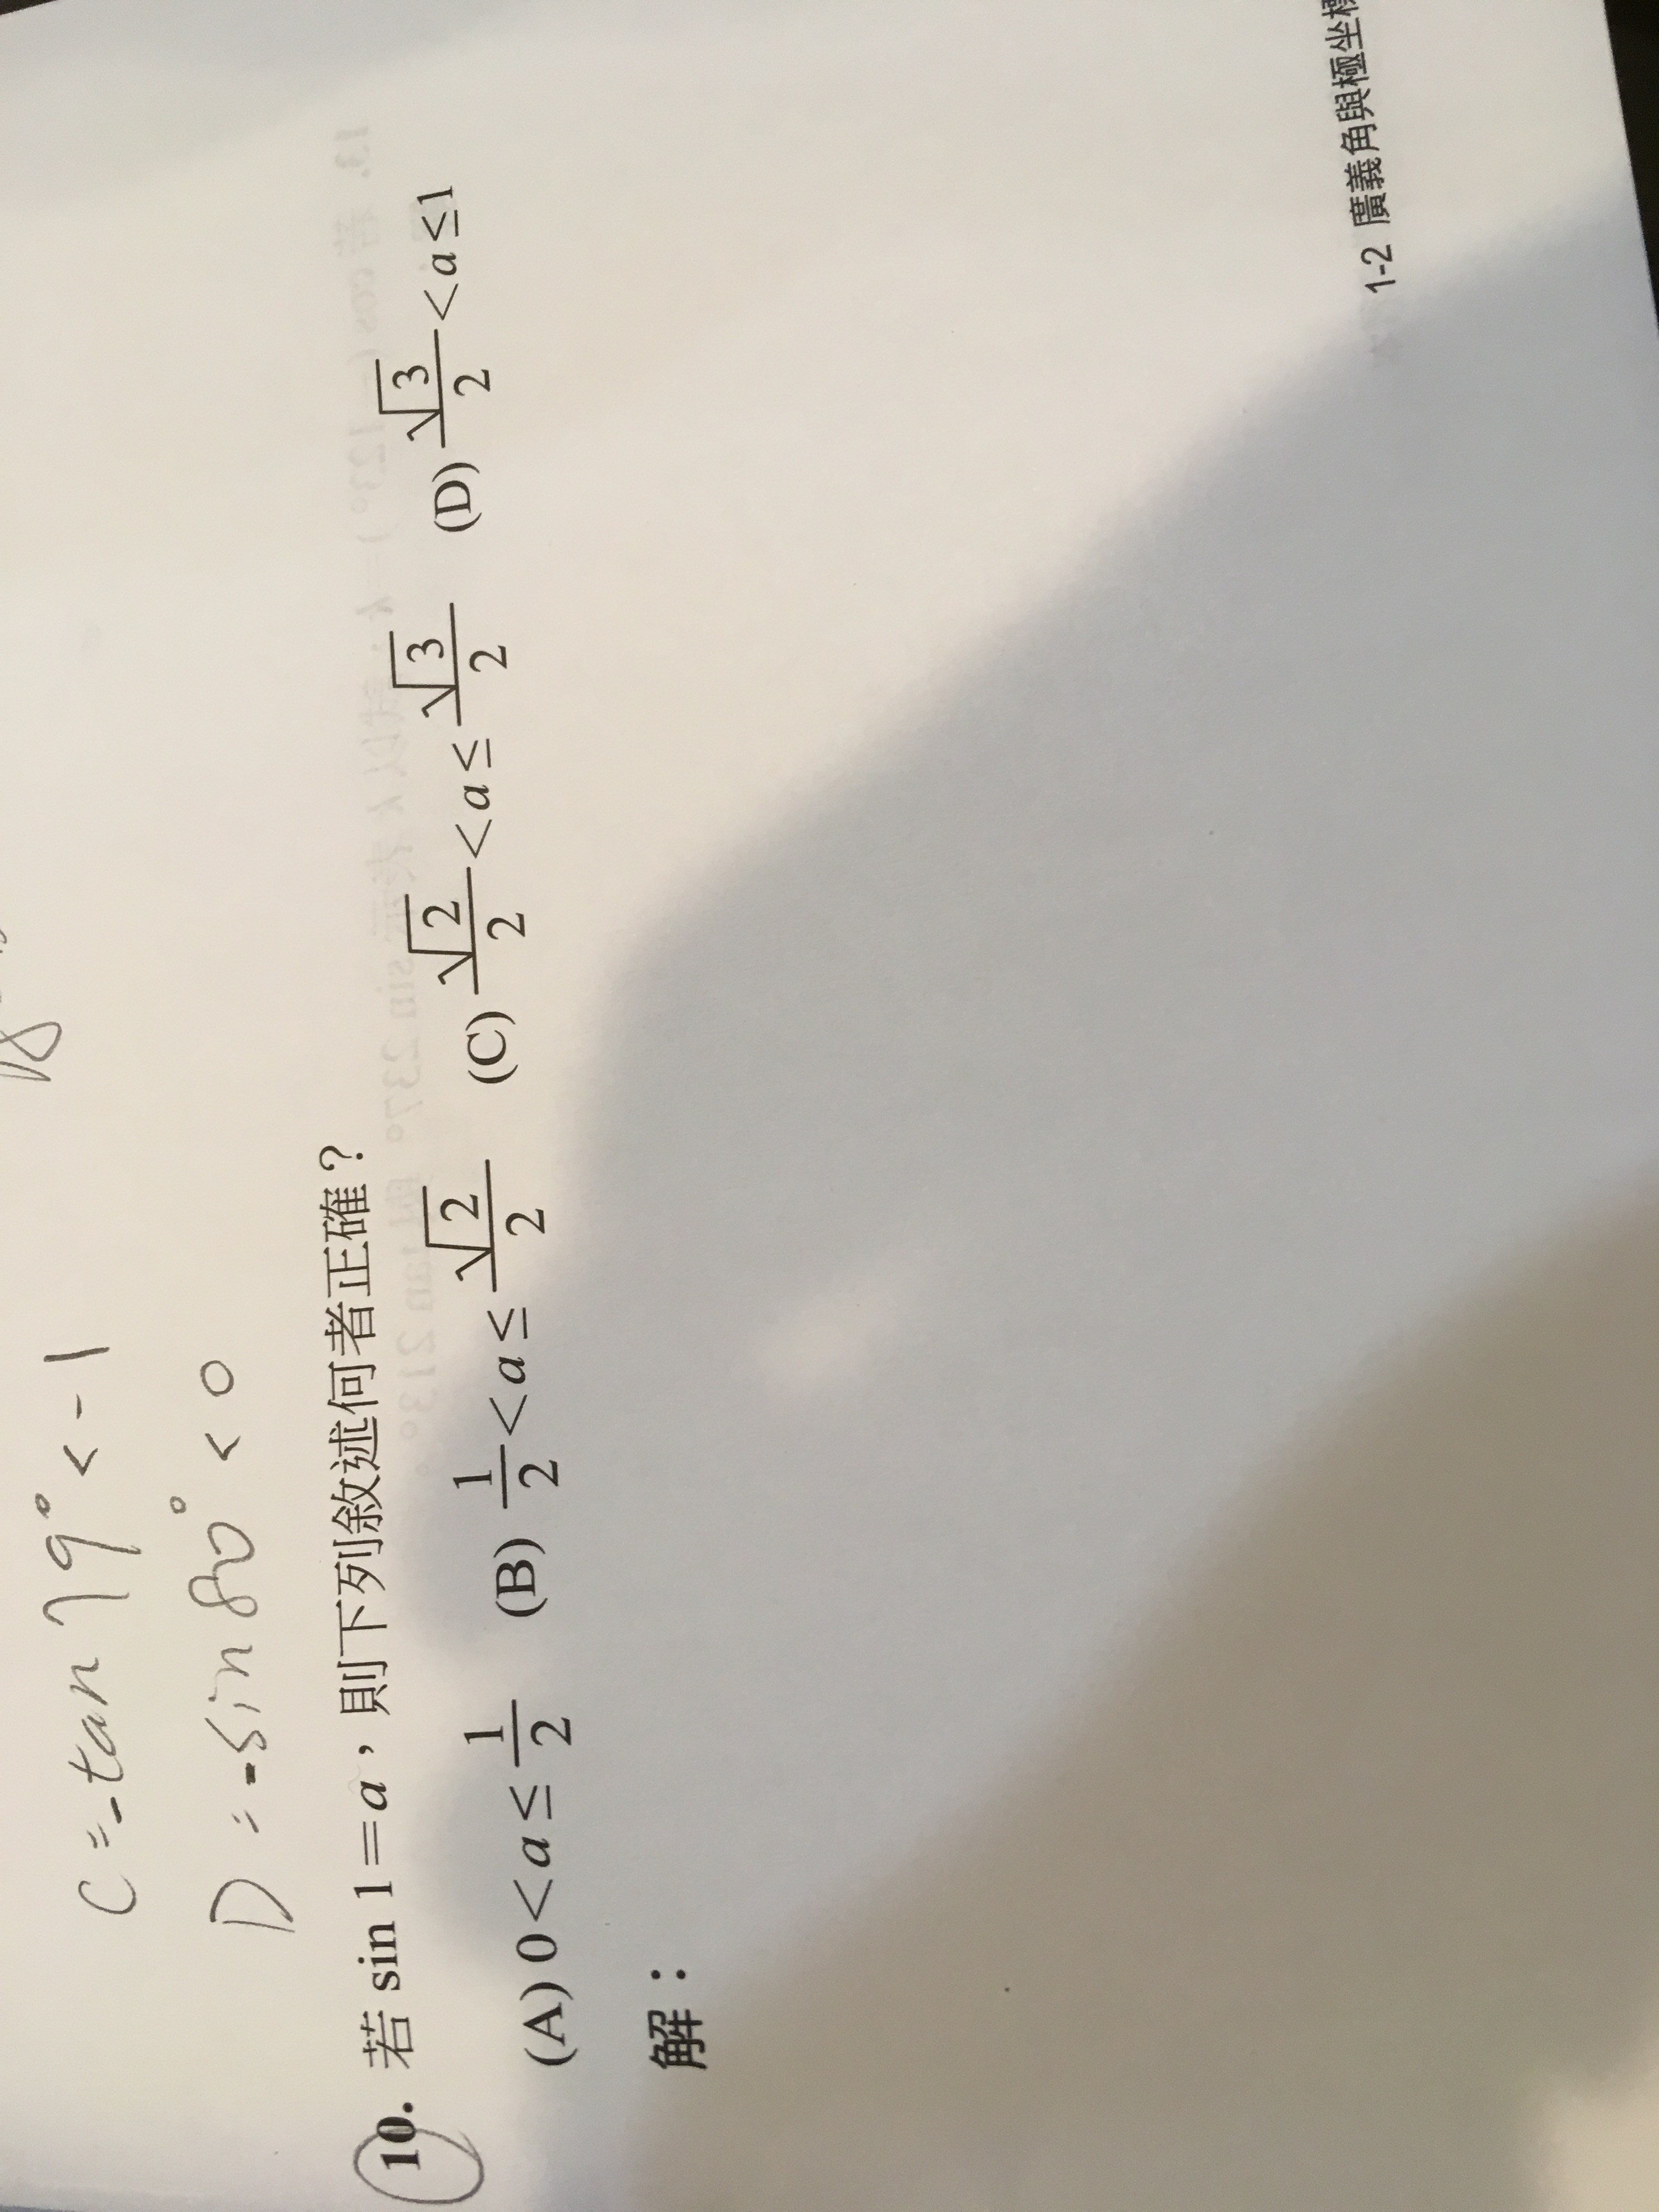 C = -tan 79° < -1
D = -sin 80° < 0
10. 若 sin 1=a，則下列敘述何者正確？
(A) 0<a≤1/2 (B) 1/2<a≤√2/2 (C) √2/2<a≤√3/2 (D) √3/2<a≤1
解：
1-2 廣義角與極坐標